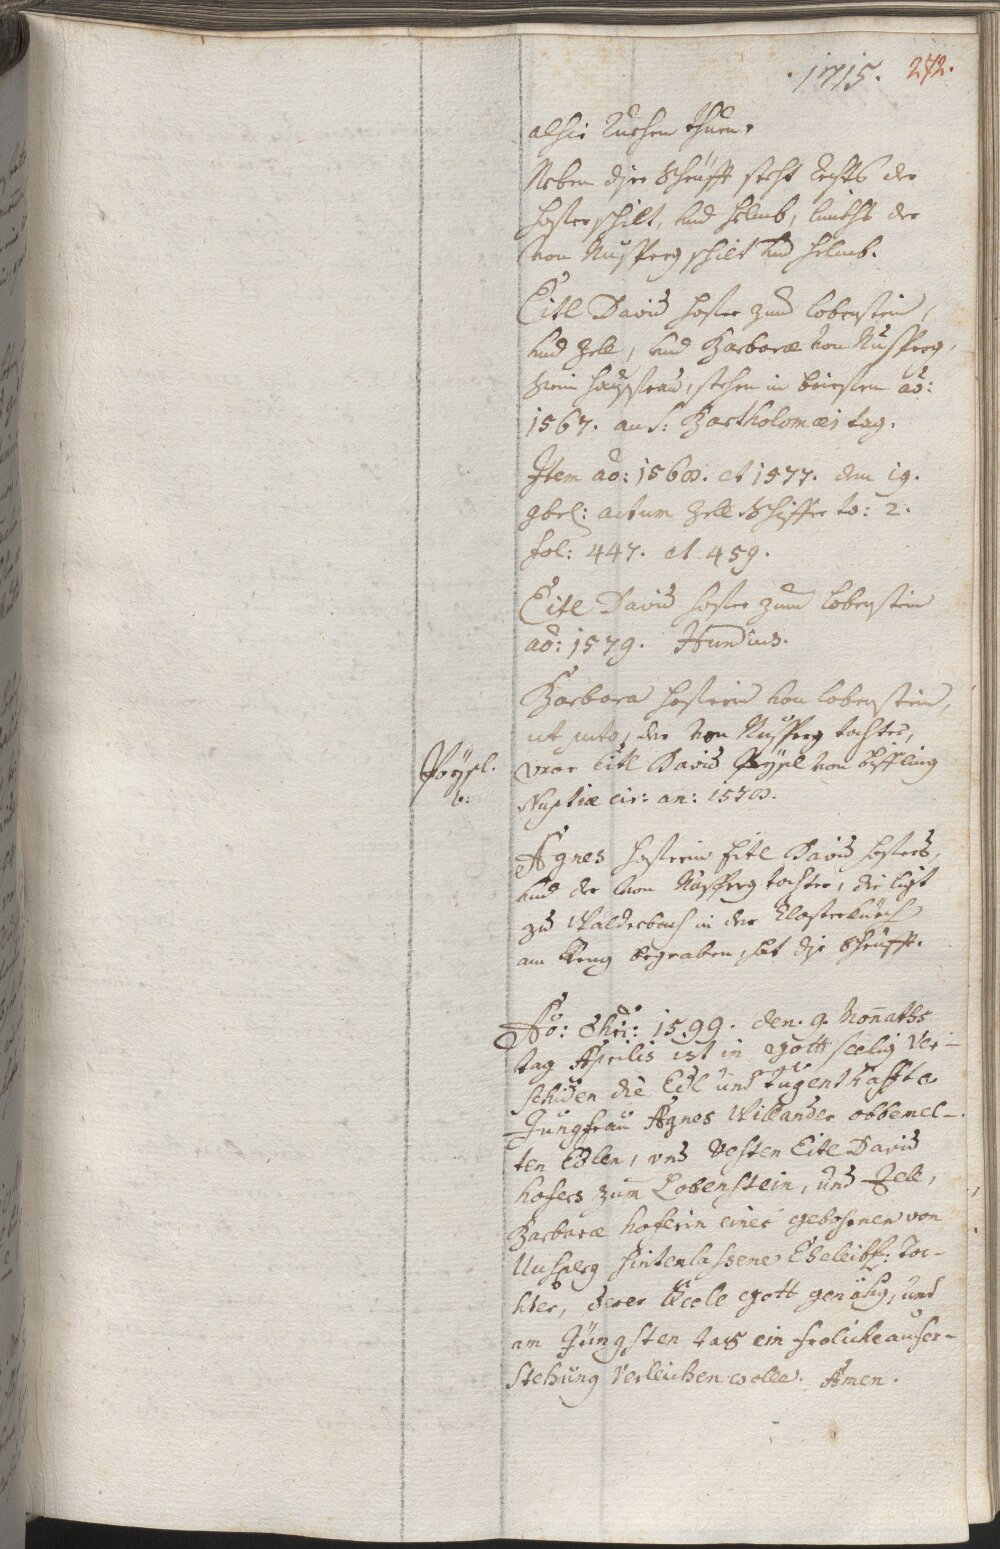 1715. 272.
alhie Ruehen thuen.
Neben dser Schrüfft steht rechts der
hofer schilt, und helmb, linckhs der
von Nusperg schilt und helmb.
Eitl David hofer zum lobenstein,
und Zell, und Barbaræ von Nusperg,
sein haussfrau, stehen in brieffen aõ:
1567. an S: Bartholomæi tag.
Item aõ: 1568. et 1577. den 19.
9bris: actum Zell Schiffer to: 2.
fol: 447. et 459.
Eitl David hofer zum lobenstein
aõ: 1579. Hundius.
Barbara hoferin von lobenstein,
ut puto, der von Nusperg tochter,
Preysl. uxor Eitl David Preysl von
b:
Nuptiæ cir: an: 1578.
Agnes hoferin Eitl David hofers,
und der von Nusperg tochter, die ligt
zu Walderbach in der Closterkürch
am Creuz begraben, hat dse Schrüfft.
Aõ: Chri: 1599. den. 9. Monaths
tag Aprilis ist in gott seelig ver-
schiden die Edl und tugenthaffte
Jungfrau Agnes Weillander obbemel-
ten Edlen, und Vesten Eitl David
hofers zum Lobenstein, und Zell,
Barbaræ hoferin einer gebohrnen von
Nusperg hintenlassene Eheleibl: Toc-
hter, derer Seele gott genädig, und
am Jüngsten tag ein froliche aufer-
stehung verleichen wolle. Amen.